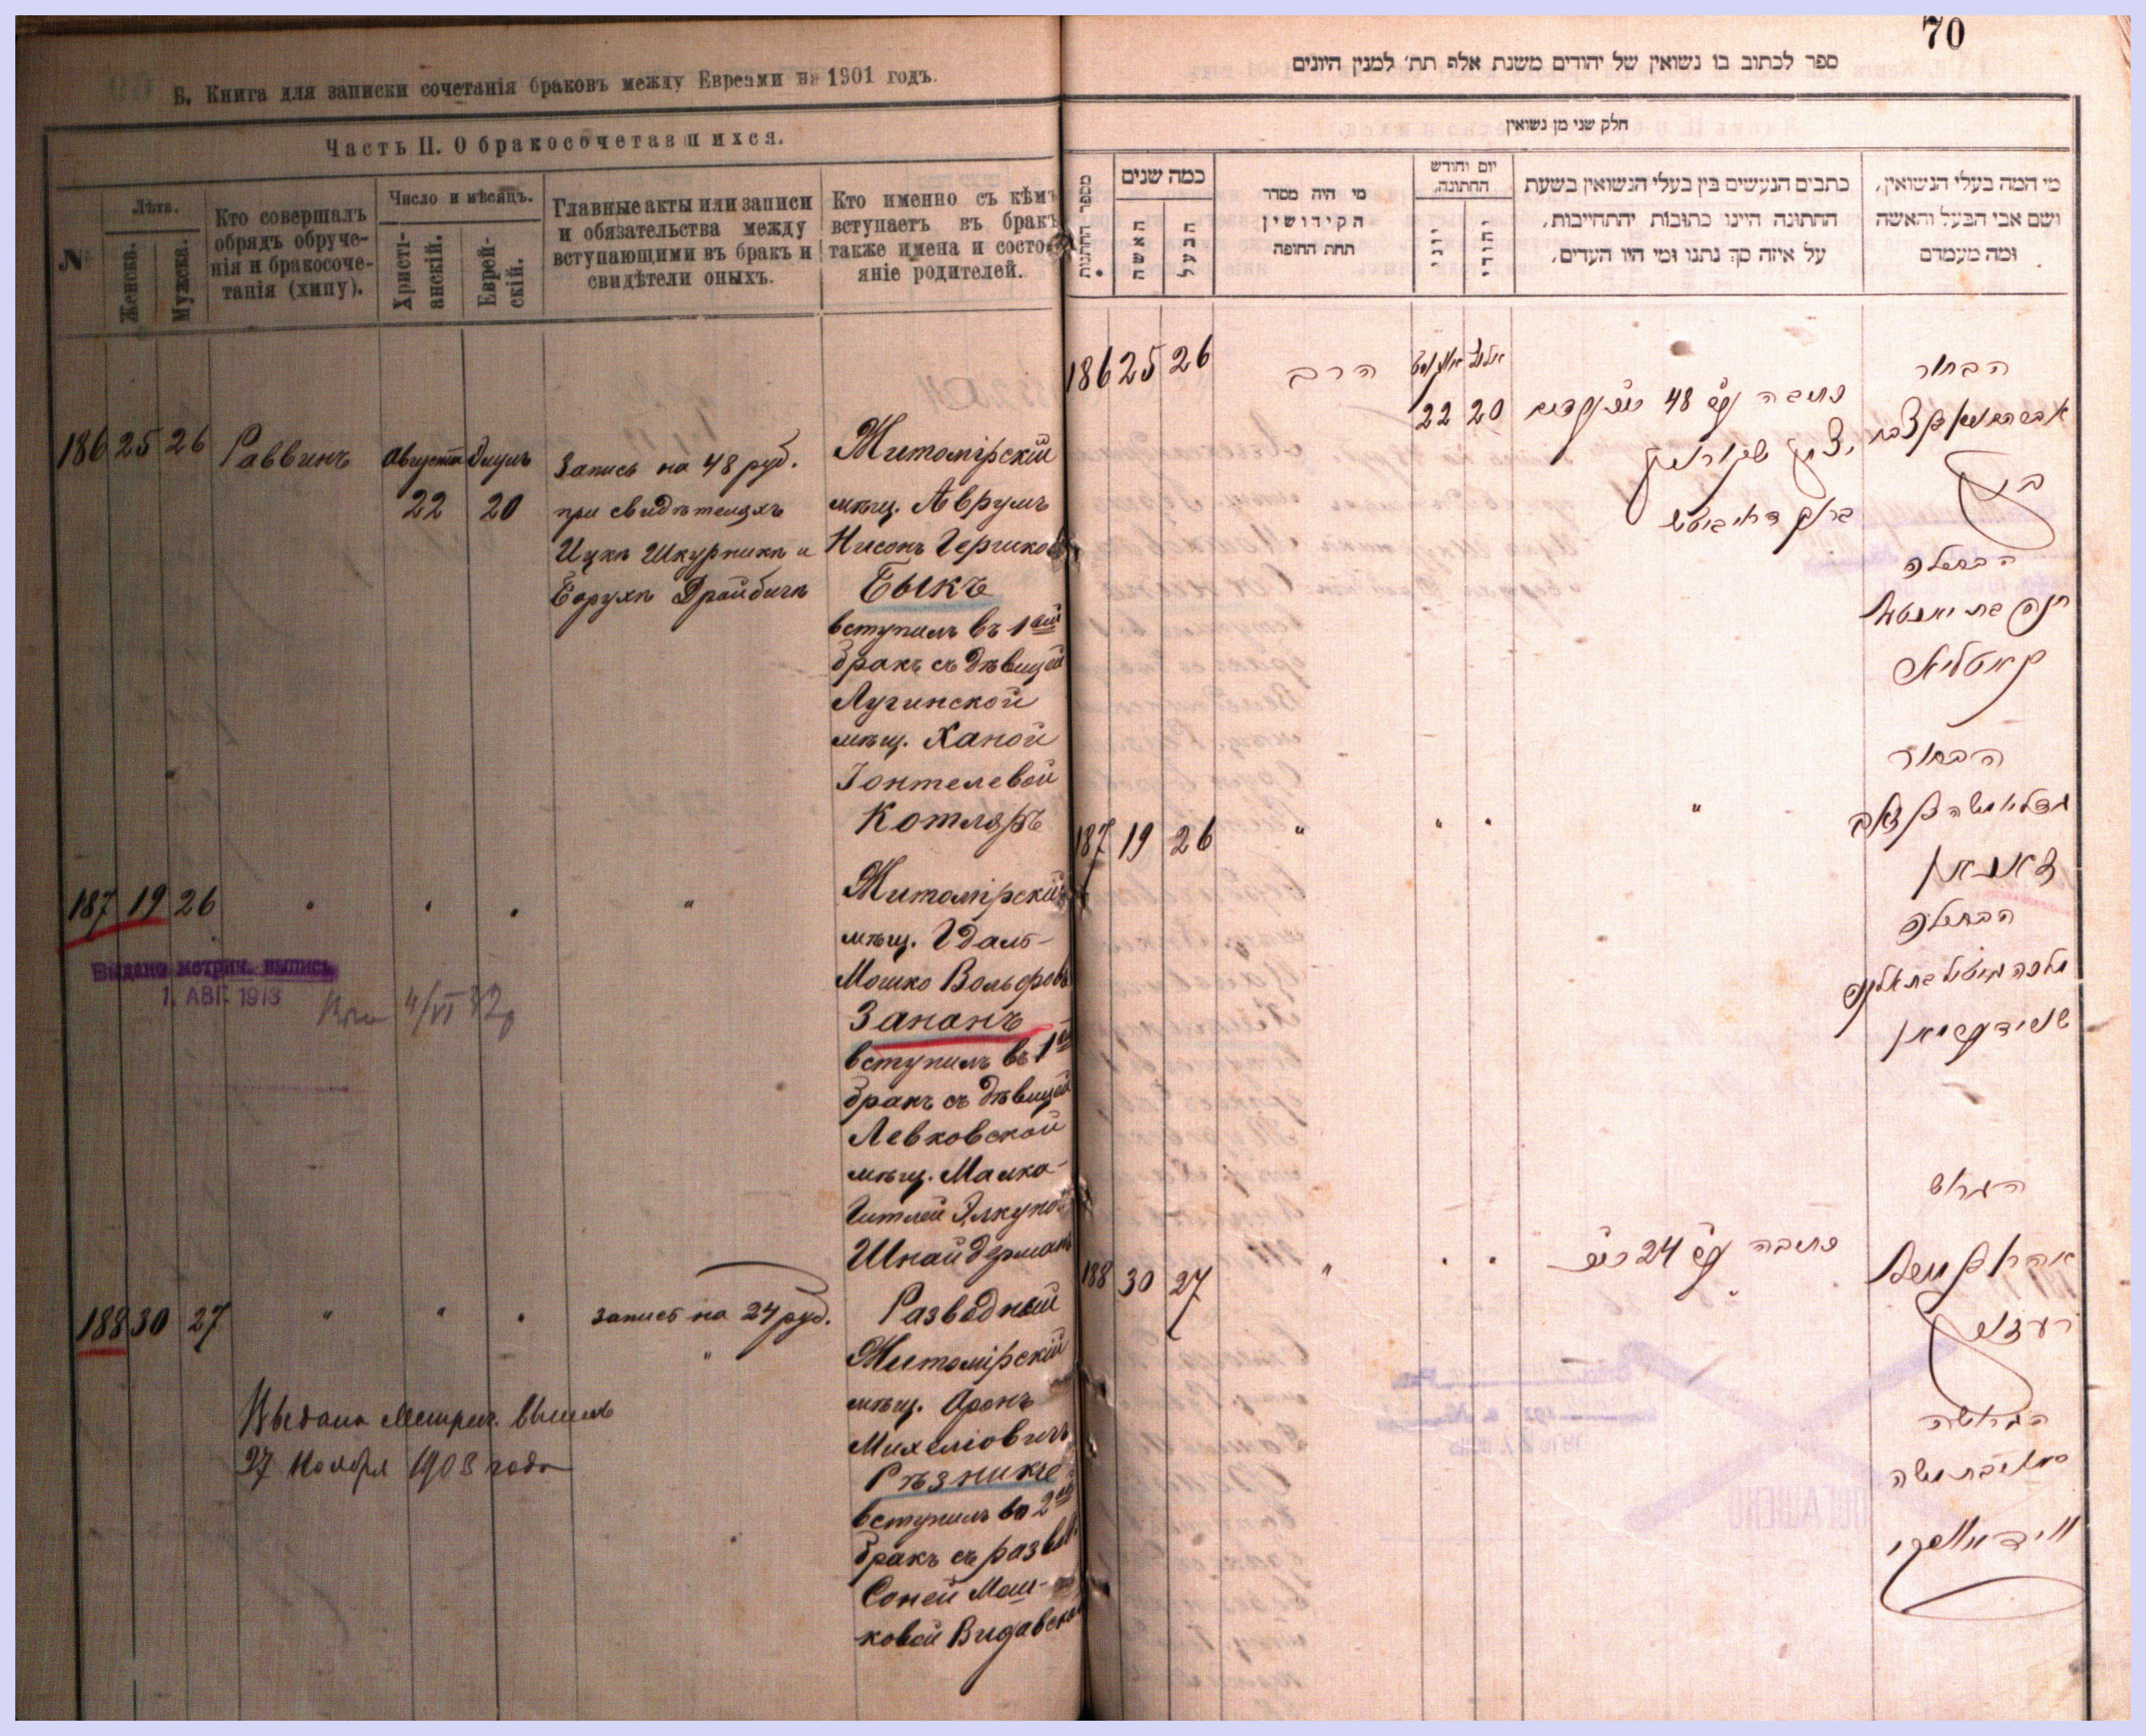 Б. Книга для записки сочетанія браковъ между Евреями на 1901 годъ.
Часть II. О бракосочетавшихся.
№
Лѣта.
Женска.
Мужска.
Кто совершалъ
обрядъ обруче-
нія и бракосоче-
танія (хипу).
Число и мѣсяцъ.
Христі-
анскій.
Еврей-
скій.
Главные акты или записи
и обязательства между
вступающими въ бракъ и
свидѣтели оныхъ.
Кто именно съ кѣмъ
вступаетъ въ бракъ
также имена и состо-
яніе родителей.
186 25 26 Раввинъ Августа Элулъ
22 20
Запись на 48 руб.
при свидѣтеляхъ
Ицкѣ Шкурникѣ и
Борухѣ Драйбичѣ
Житомірскій
мѣщ. Аврумъ
Нисонъ Гершковъ
Быкъ
вступилъ въ 1ый
бракъ съ дѣвицей
Лугинской
мѣщ. Ханой
Іонтелевой
Котляръ
187 19 26 " " " "
Житомірскій
мѣщ. Гдаль-
Мошко Вольфовъ
Зананъ
вступилъ въ 1ый
бракъ съ дѣвицей
Левковской
мѣщ. Малка-
Гитлей Элкуной
Шнайдерманъ
Выдана метрич. выпись
1. АВГ. 1913
4/VI 32
188 30 27 " " "
запись на 24 руб.
"
Разводный
Житомірскій
мѣщ. Аронъ
Михеліовичъ
Рѣзникъ
вступилъ во 2ой
бракъ съ развед.
Соней Мош-
ковой Видавской
Выдана Метрич. выпись
27 Ноября 1908 года
70
ספר לכתוב בו נשואין של יהודים משנת אלף תת׳ למנין היונים
חלק שני מן נשואין
מספר החתונות
כמה שנים
האשה
הבעל
מי היה מסדר
הקידושין
תחת החופה
יום וחודש
החתונה,
יוני
יהודי
כתבים הנעשים בין בעלי הנשואין בשעת
החתונה היינו כתובות יהתחייבות,
על איזה סך נתנו ומי היו העדים,
מי המה בעלי הנשואין,
ושם אבי הבעל והאשה
ומה מעמדם
186 25 26 הרב אויגוסט אלול
22 20
כתובה על 48
הבחור
ביק
הבתולה
קאטליאר
187 19 26 " " " "
הבחור
זאנאן
הבתולה
שניידערמאן
188 30 27 " " "
כתובה על 24
"
הגרוש
רעזניק
הגרושה
ПОГАШЕНО